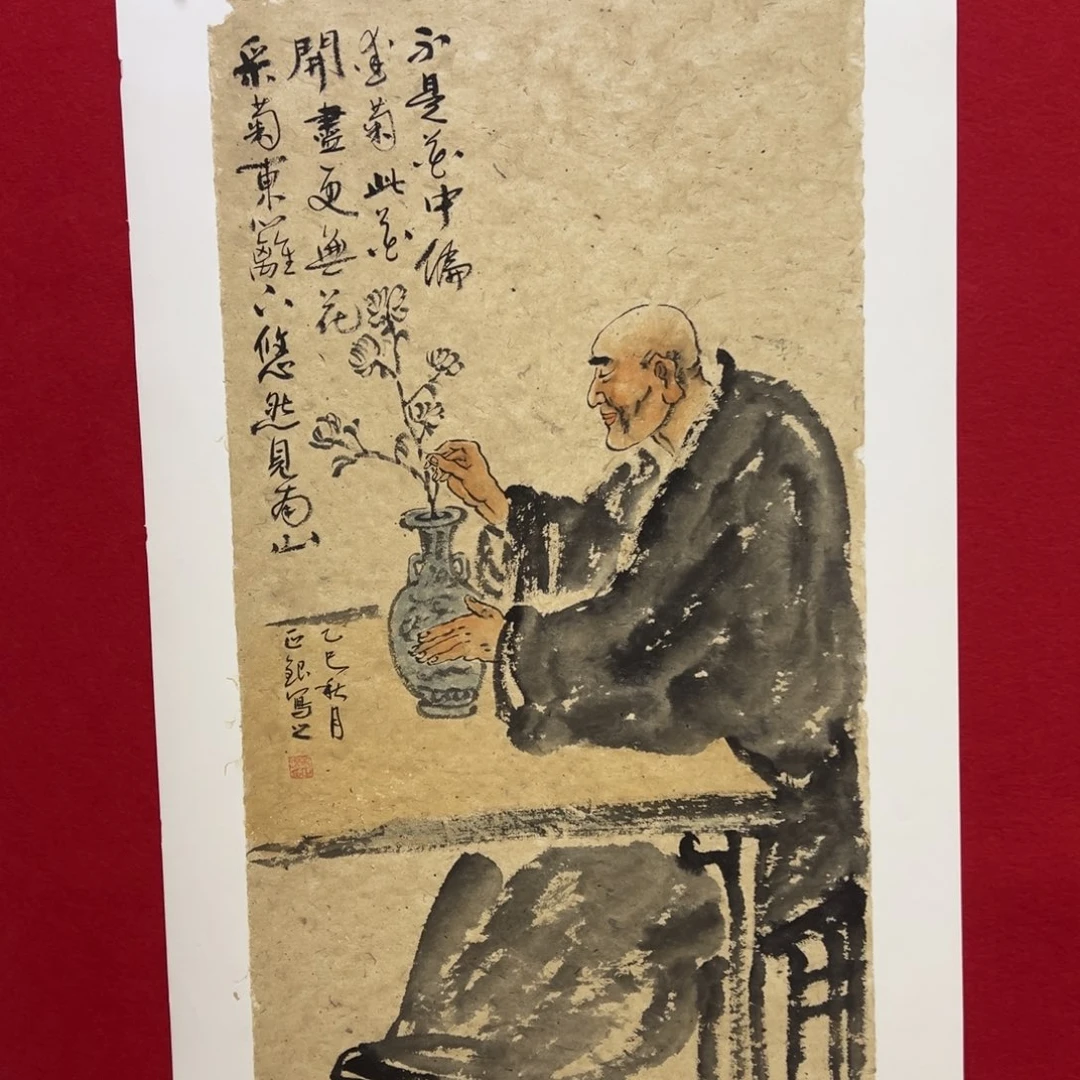 不是花中偏
愛菊此花
開盡更無花
采菊東籬下悠然見南山
乙巳秋月
正銀寫之